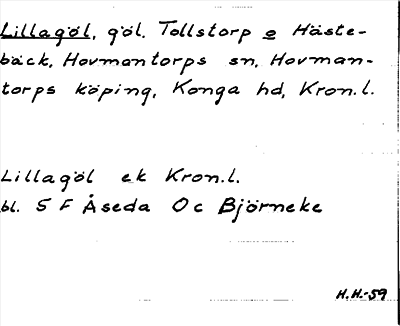 Lillagöl, göl. Tollstorp o Häste-
bäck, Hovmantorps sn, Hovman-
torps köping, Konga hd, Kron.l.
Lillagöl ek Kron.l.
bl. 5 F Åseda Oc Björneke
H.H.-59